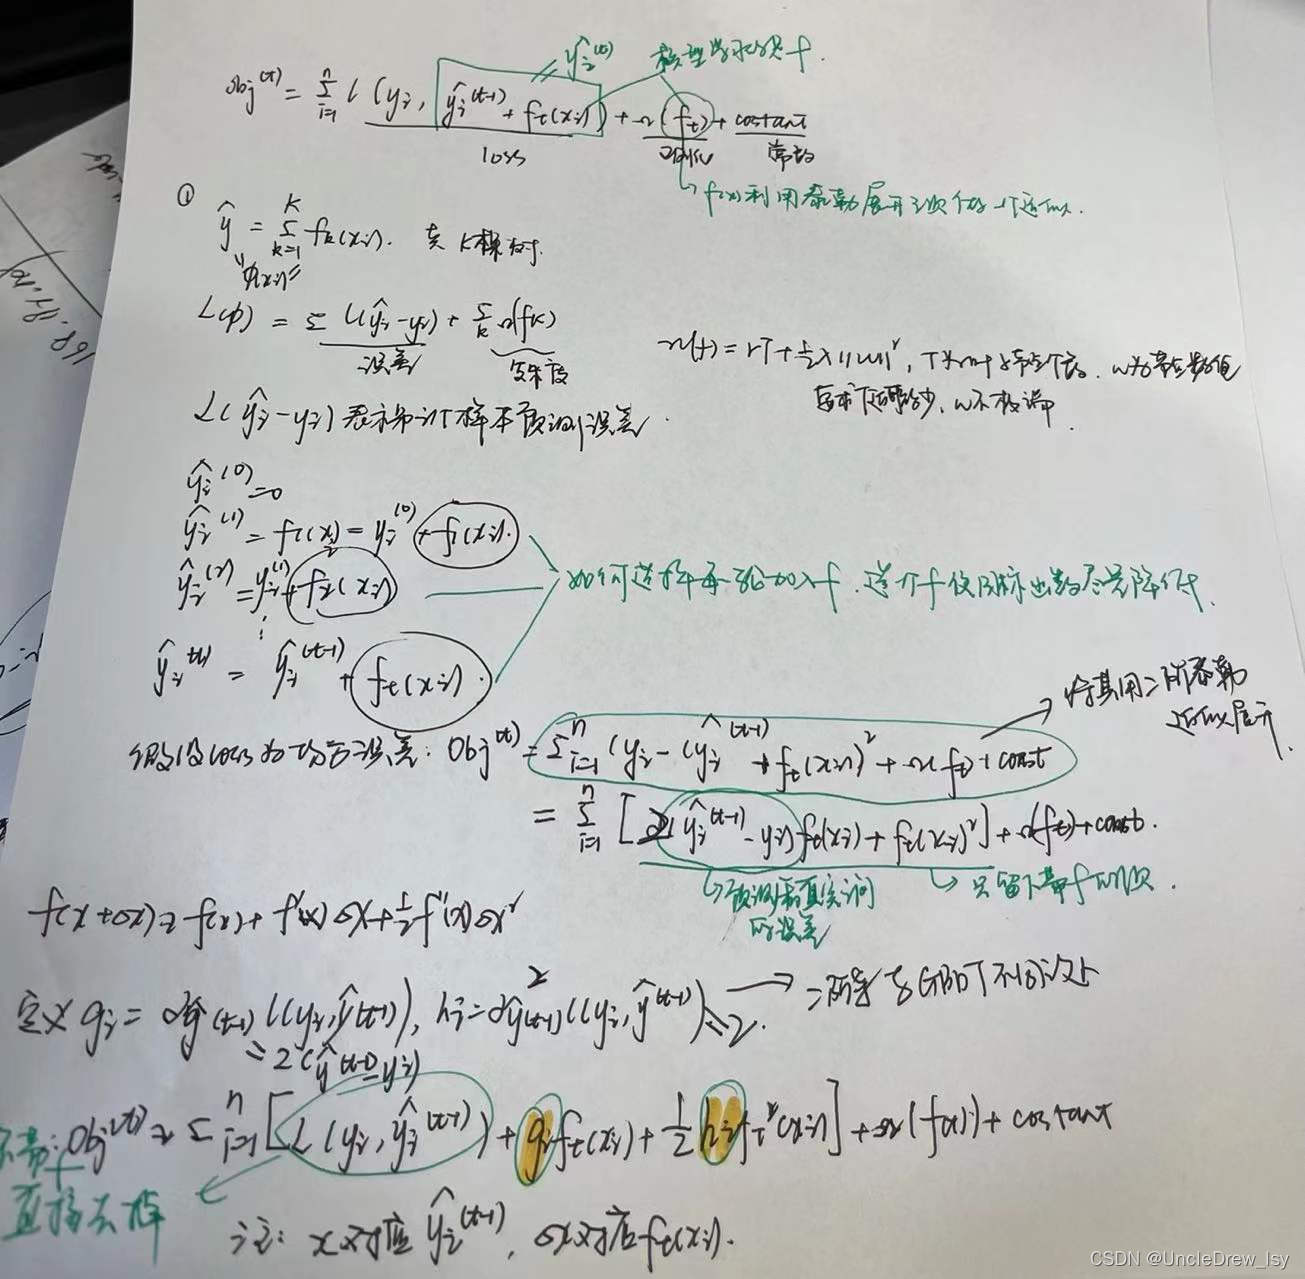 ŷᵢ⁽ᵗ⁾ 模型学习的是f.
obj⁽ᵗ⁾ = Σᵢ₌₁ⁿ l(yᵢ, ŷᵢ⁽ᵗ⁻¹⁾ + fₜ(xᵢ)) + Ω(fₜ) + costant
loss 正则化 常数
f(x)利用泰勒展开二次做一个近似.
①
ŷ = Σₖ₌₁ᴷ fₖ(xᵢ). 共K棵树.
φ(xᵢ)
L(φ) = Σ l(ŷᵢ-yᵢ) + Σₖ Ω(fₖ)
误差 复杂度
Ω(f) = rT + ½λ||w||², T为叶子节点个数. w为节点数值
L(ŷᵢ-yᵢ)表示第i个样本预测误差.
ŷᵢ⁽⁰⁾=0
ŷᵢ⁽¹⁾ = f₁(xᵢ) = yᵢ⁽⁰⁾ + f₁(xᵢ).
ŷᵢ⁽²⁾ = yᵢ⁽¹⁾ + f₂(xᵢ)
如何选择每一轮加入f.这个f使目标函数尽量降低.
⋮
ŷᵢ⁽ᵗ⁾ = ŷᵢ⁽ᵗ⁻¹⁾ + fₜ(xᵢ).
将其用二阶泰勒
近似展开.
假设loss为均方误差: Obj⁽ᵗ⁾ = Σᵢ₌₁ⁿ (yᵢ - (ŷᵢ⁽ᵗ⁻¹⁾ + fₜ(xᵢ))² + Ω(fₜ) + const
= Σᵢ₌₁ⁿ [2(ŷᵢ⁽ᵗ⁻¹⁾ - yᵢ)fₜ(xᵢ) + fₜ(xᵢ)²] + Ω(fₜ) + const.
预测和真实之间 只留下带f的项.
的误差
f(x+Δx) ≈ f(x) + f'(x)Δx + ½f''(x)Δx²
定义 gᵢ = ∂ŷ(t-1) l(yᵢ, ŷ(t-1)), hᵢ = ∂²ŷ(t-1) l(yᵢ, ŷ⁽ᵗ⁻¹⁾) = 2. → 二阶导与GBDT不同之处
= 2(ŷ(t-1)-yᵢ)
Obj⁽ᵗ⁾ ≈ Σᵢ₌₁ⁿ [L(yᵢ, ŷᵢ⁽ᵗ⁻¹⁾) + gᵢfₜ(xᵢ) + ½hᵢfₜ²(xᵢ)] + Ω(f(x)) + costant
不带f
直接去掉
注: x对应ŷᵢ⁽ᵗ⁻¹⁾, Δx对应fₜ(xᵢ).
CSDN @UncleDrew_lsy